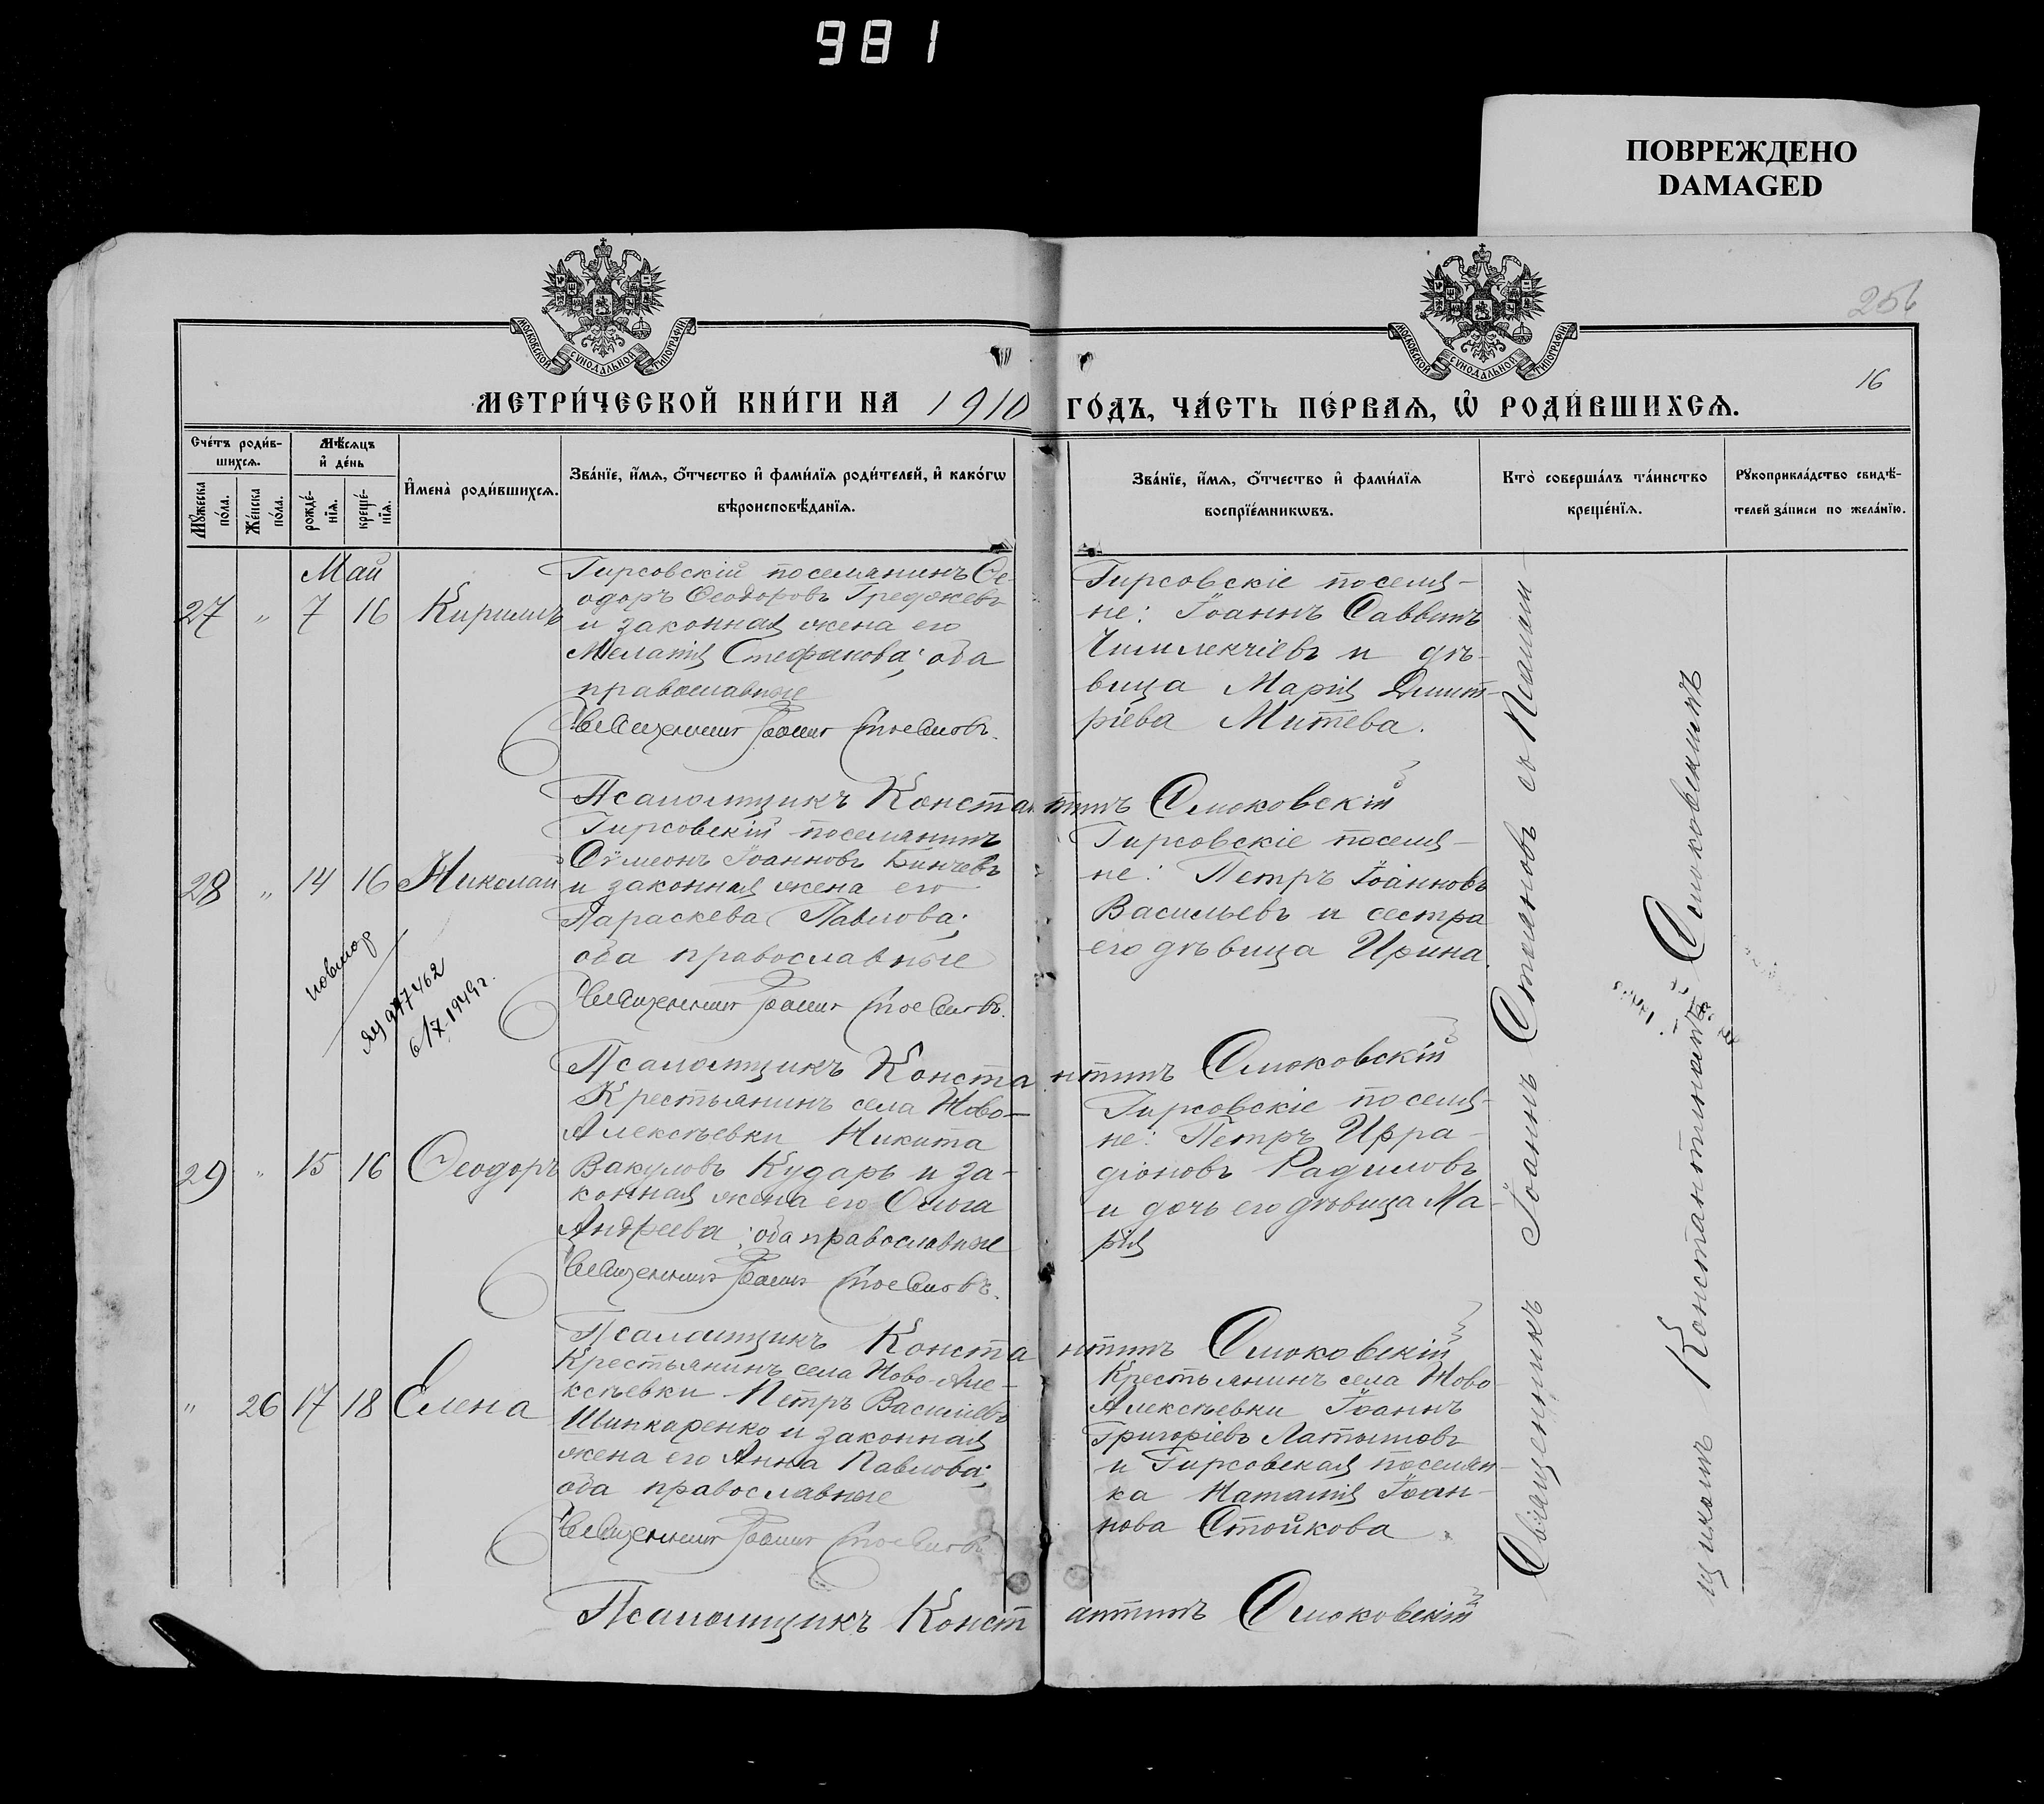 981
ПОВРЕЖДЕНО
DAMAGED
256
16
МОСКОВСКОЙ СУНОДАЛЬНОЙ ТИПОГРАФІИ
МОСКОВСКОЙ СУНОДАЛЬНОЙ ТИПОГРАФІИ
МЕТРИ́ЧЕСКОЙ КНИ́ГИ НА 1910 ГО́ДЪ, ЧА́СТЬ ПЕ́РВАѦ, Ѡ҆ РОДИ́ВШИХСѦ.
Сче́тъ роди́в-
шихсѧ.
Мꙋ́жеска по́ла.
Же́нска по́ла.
Мѣ́сѧцъ
и҆ де́нь
рожде́-
нїѧ.
креще́-
нїѧ.
И҆мена̀ роди́вшихсѧ.
Зва́нїе, и҆́мѧ, ѻ҆́тчество и҆ фами́лїѧ роди́телей, и҆ како́гѡ
вѣроисповѣ́данїѧ.
Зва́нїе, и҆́мѧ, ѻ҆́тчество и҆ фами́лїѧ
воспрїе́мникѡвъ.
Кто̀ соверша́лъ та́инство
креще́нїѧ.
Рꙋкоприкла́дство свидѣ́-
телей за́писи по жела́нїю.
Май
27 " 7 16 Кириллъ
Гирсовскій поселянинъ Ѳе-
одоръ Ѳеодоровъ Греджевъ
и законная жена его
Мелатія Стефанова; оба
православные
Священникъ Іоаннъ Стоевиковъ.
Гирсовскіе поселя-
не: Іоаннъ Саввинъ
Чимлекчіевъ и дѣ-
вица Марія Димит-
ріева Митева.
Псаломщикъ Константинъ Смоковскій
28 " 14 16 Николай
Гирсовскій поселянинъ
Сѷмеонъ Іоанновъ Бинчевъ
и законная жена его
Параскева Павлова;
оба православные
Священникъ Іоаннъ Стоевиковъ.
Гирсовскіе поселя-
не: Петръ Іоанновъ
Васильевъ и сестра
его дѣвица Ирина.
повтор
977462
6/X 1949г.
Псаломщикъ Константинъ Смоковскій
29 " 15 16 Ѳеодоръ
Крестьянинъ села Ново-
Алексѣевки Никита
Вакуловъ Кударь и за-
конная жена его Ольга
Андреева; оба православные
Священникъ Іоаннъ Стоевиковъ.
Гирсовскіе поселя-
не: Петръ Ирра-
діоновъ Радиловъ
и дочь его дѣвица Ма-
рія
Псаломщикъ Константинъ Смоковскій
" 26 17 18 Елена
Крестьянинъ села Ново-Але-
ксѣевки Петръ Васильевъ
Шинкаренко и законная
жена его Анна Павлова;
оба православные
Священникъ Іоаннъ Стоевиковъ
Крестьянинъ села Ново-
Алексѣевки Іоаннъ
Григоріевъ Латышовъ
и Гирсовская поселян-
ка Наталія Іоан-
нова Стойкова.
Псаломщикъ Константинъ Смоковскій
Священникъ Іоаннъ съ Псалом-
щикомъ Константиномъ Смоковскимъ